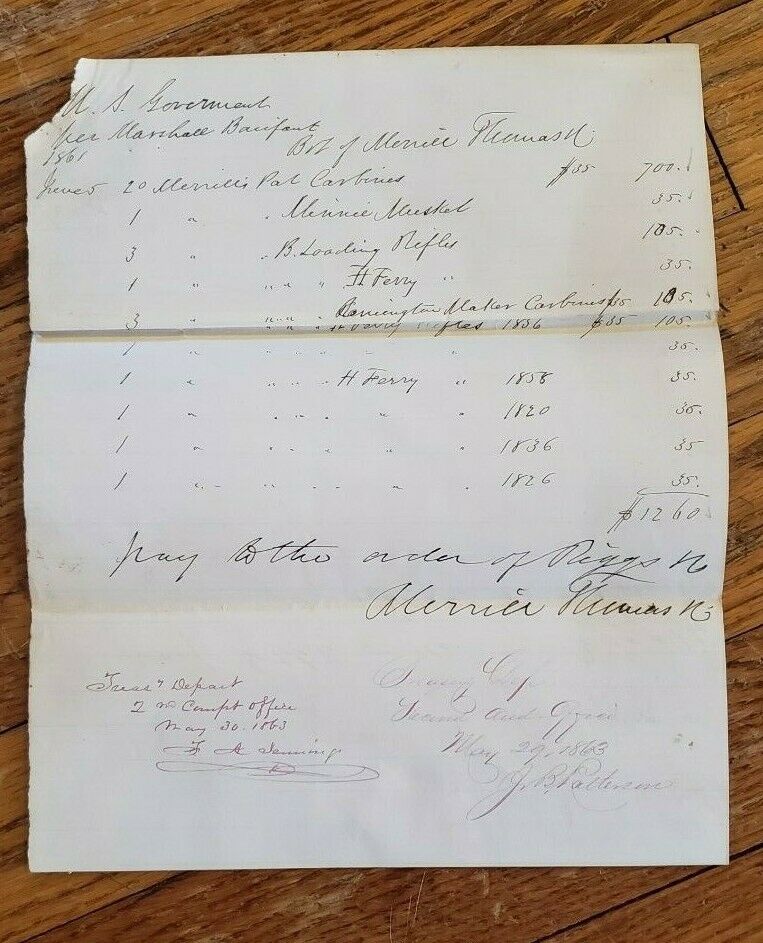 U. S. Goverment
per Marshall Bonifant
1861 Bot of Merrill Thomas &
June 5 20 Merrill's Pat Carbines $35 700.
1 " " Minnie Musket 35.
3 " " B. Loading Rifles 105.
1 " " " " H Ferry " 35.
3 " " " " Remington Maker Carbines $35 105.
" " " H Ferry Rifles 1836 $35 105.
1 " " " " " 35.
1 " " " " H Ferry " 1858 35.
1 " " " " " " 1820 35.
1 " " " " " " 1836 35
1 " " " " " " 1826 35.
$1260
pay to the order of Riggs &
Merrill Thomas &
Treasy Depart
2nd Compt Office
May 30. 1863
F A Jennings
Second Aud. Office
May 29, 1863
J. B. Patterson